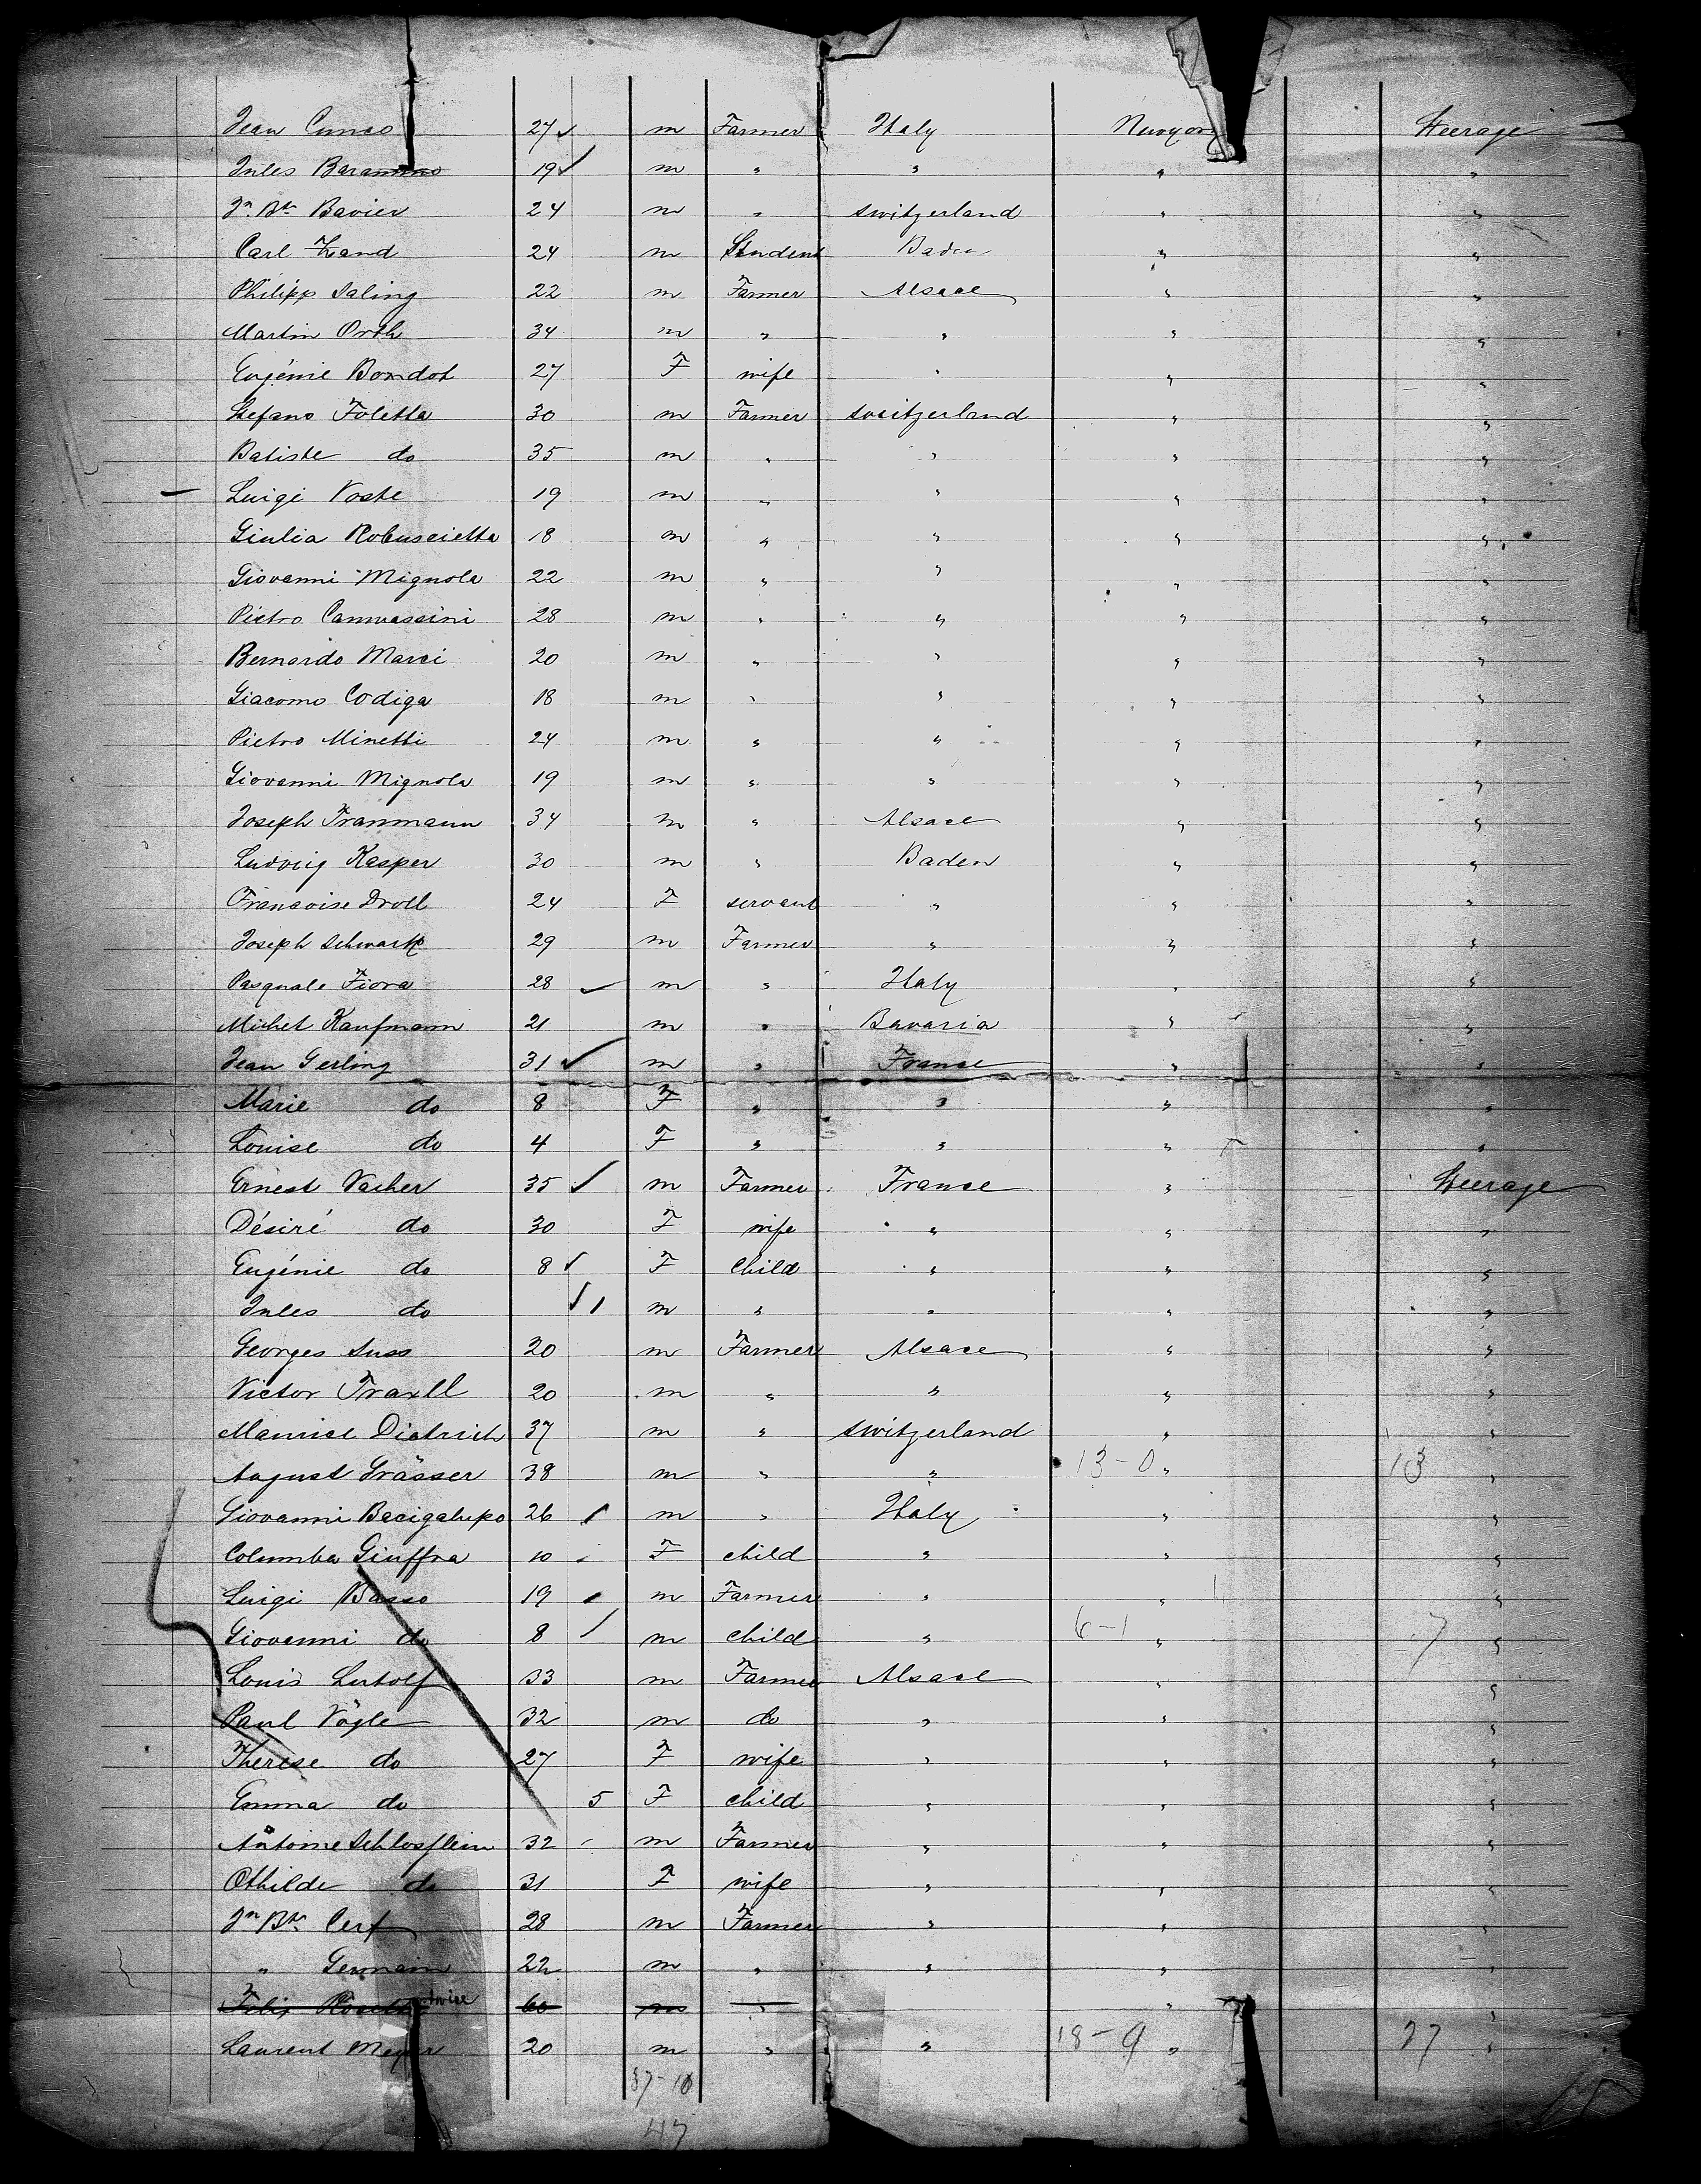 Jean Cuneo 27 m Farmer Italy Newyork Steerage
Jules 19 m " " " "
Jn. Bte. Bavier 24 m " switzerland " "
Carl Zand 24 m Student Baden " "
Philipp Saling 22 m Farmer Alsace " "
Martin Orth 34 m " " " "
Eugénie Bondot 27 F wife " " "
Stefano Foletta 30 m Farmer switzerland " "
Batiste do 35 m " " " "
Luigi Voste 19 m " " " "
Giulia Robuscietta 18 m " " " "
Giovanni Mignola 22 m " " " "
Pietro 28 m " " " "
Bernardo Marci 20 m " " " "
Giacomo Codiga 18 m " " " "
Pietro Minetti 24 m " " " "
Giovanni Mignola 19 m " " " "
Joseph Franmann 34 m " Alsace " "
Ludwig Kasper 30 m " Baden " "
Francoise Droll 24 F servant " " "
Joseph Schwartz 29 m Farmer " " "
Pasquale Fiora 28 m " Italy " "
Michel Kaufmann 21 m " Bavaria " "
Jean Gerling 31 m " France " "
Marie do 8 F " " " "
Louise do 4 F " " " "
Ernest Vacher 35 m Farmer France " Steerage
Désiré do 30 F wife " " "
Eugénie do 8 F child " " "
Jules do 1 m " " " "
Georges Suss 20 m Farmer Alsace " "
Victor Traxll 20 m " " " "
Maurice Dietrich 37 m " switzerland " "
August Grässer 38 m " " 13-0 " 13 "
Giovanni Bacigalupo 26 m " Italy " "
Columba Giuffra 10 F child " " "
Luigi Basso 19 m Farmer " " "
Giovanni do 8 m child " 6-1 " 7 "
Louis Lutolf 33 m Farmer Alsace " "
Paul Vögle 32 m do " " "
Therese do 27 F wife " " "
Emma do 5 F child " " "
Antoine Schlosflein 32 m Farmer " " "
Othilde do 31 F wife " " "
Jn Bte. Cerf 28 m Farmer " " "
" Germain 22 m " " " "
Felix 60 m " " "
Laurent Meyer 20 m " " 18-9 " 27 "
37-10
47